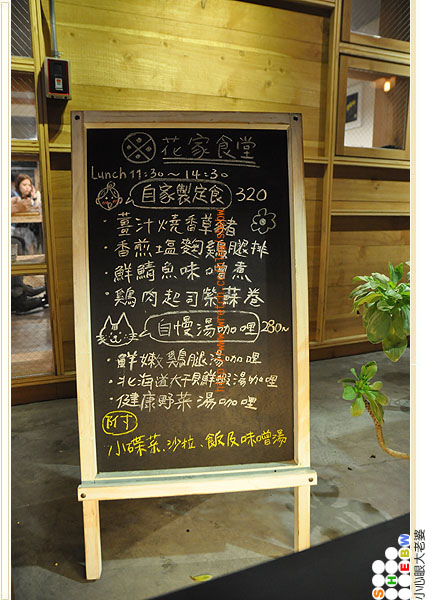 花家食堂
Lunch 11:30～14:30
自家製定食 320
·薑汁燒香草豬
·香煎塩麴鷄腿排
·鮮鯖魚味噌煮
·鷄肉起司紫蘇卷
自慢湯咖哩 280~
·鮮嫩鷄腿湯咖哩
·北海道大干貝鮮蝦湯咖哩
·健康野菜湯咖哩
附
小碟菜、沙拉、飯及味噌湯
SHEBW
小心眼大老婆